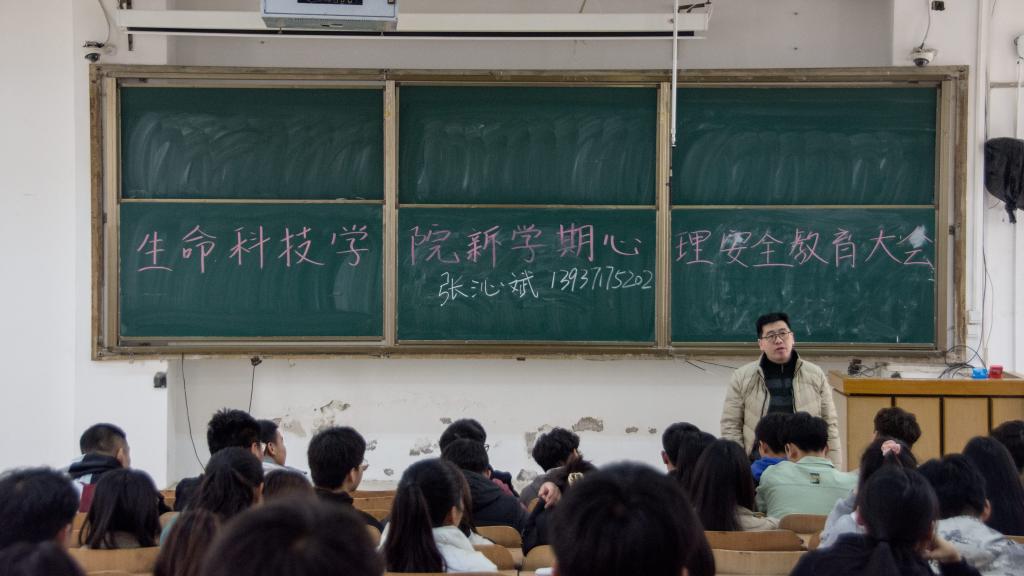 生命科技学院新学期心理安全教育大会
张沁斌 13937175202